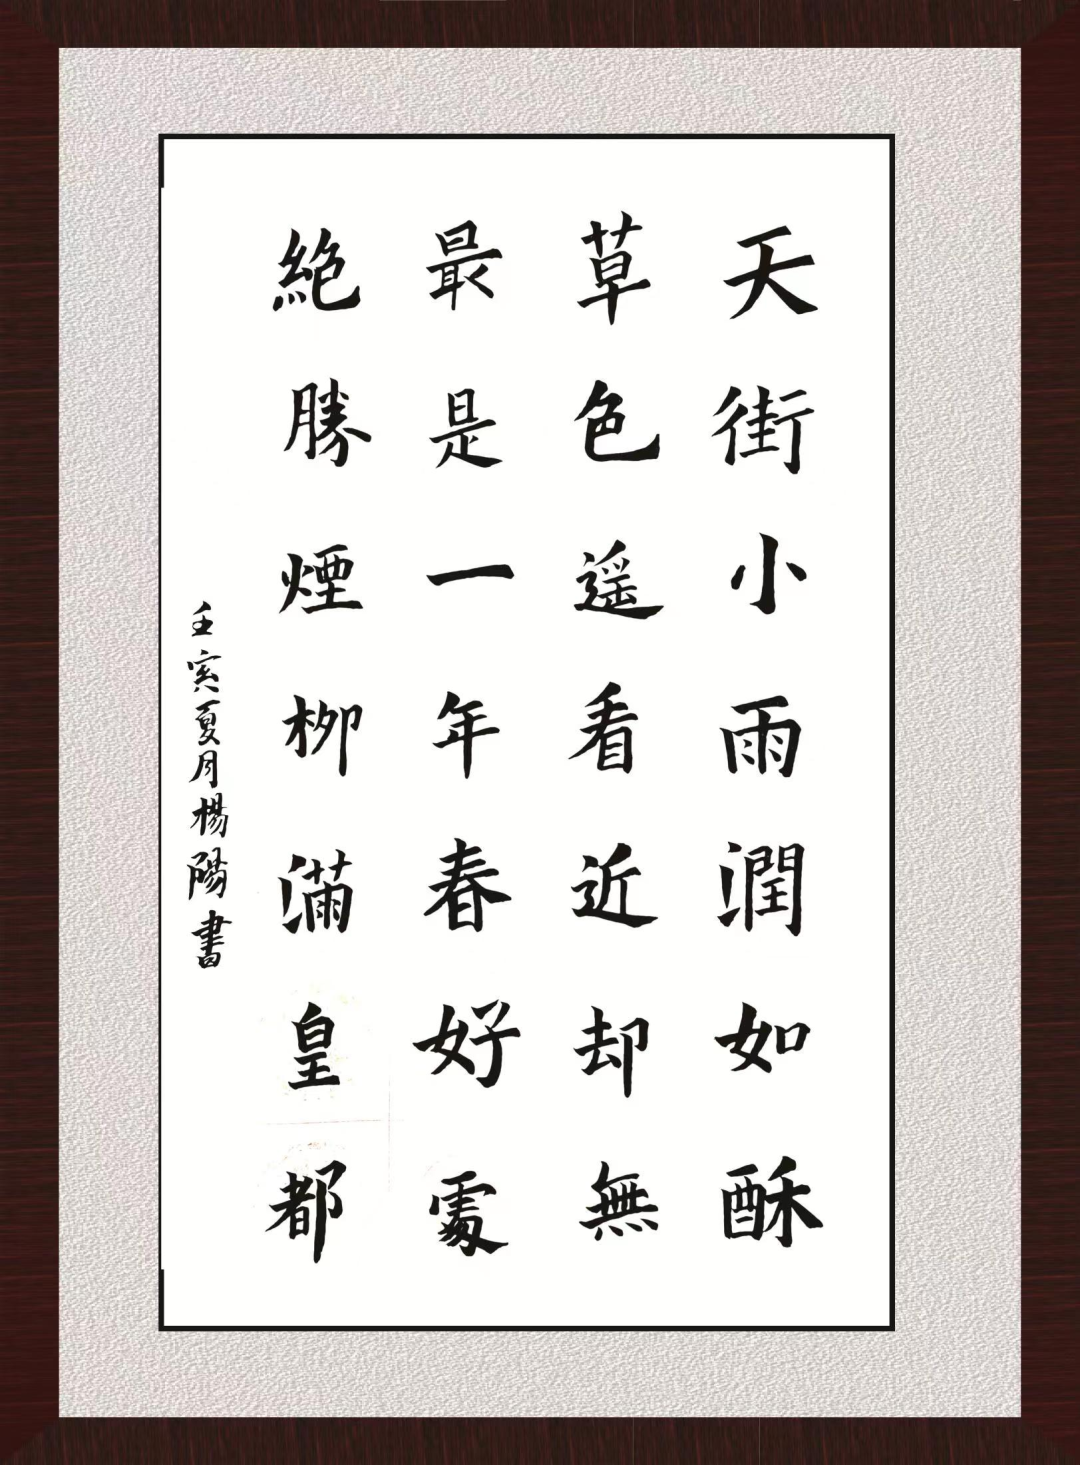 天街小雨潤如酥
草色遥看近却無
最是一年春好處
絶勝煙柳滿皇都
壬寅夏月楊陽書